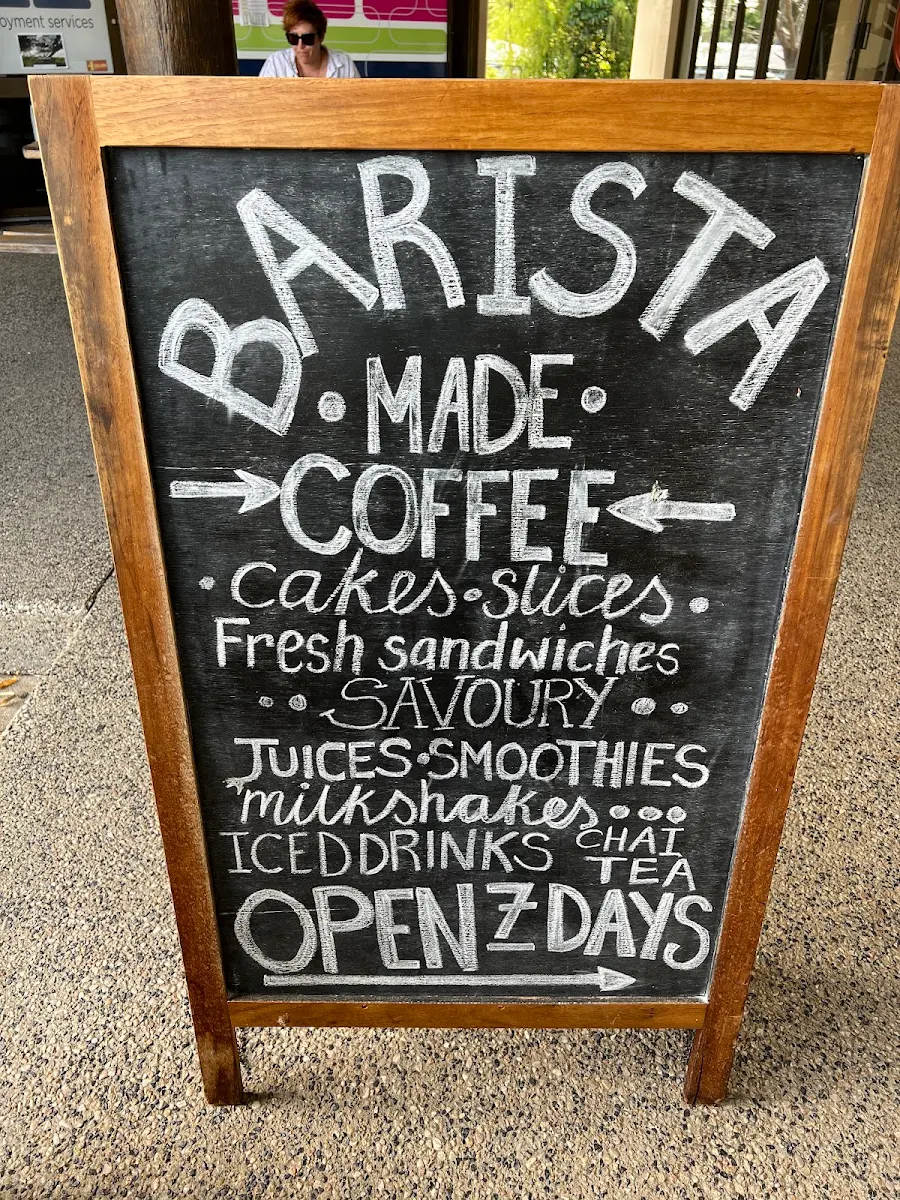 oyment services
BARISTA
• MADE •
→ COFFEE ←
• cakes • slices •
Fresh sandwiches
•• SAVOURY ••
JUICES • SMOOTHIES
milkshakes •••
ICED DRINKS CHAI TEA
OPEN 7 DAYS
→